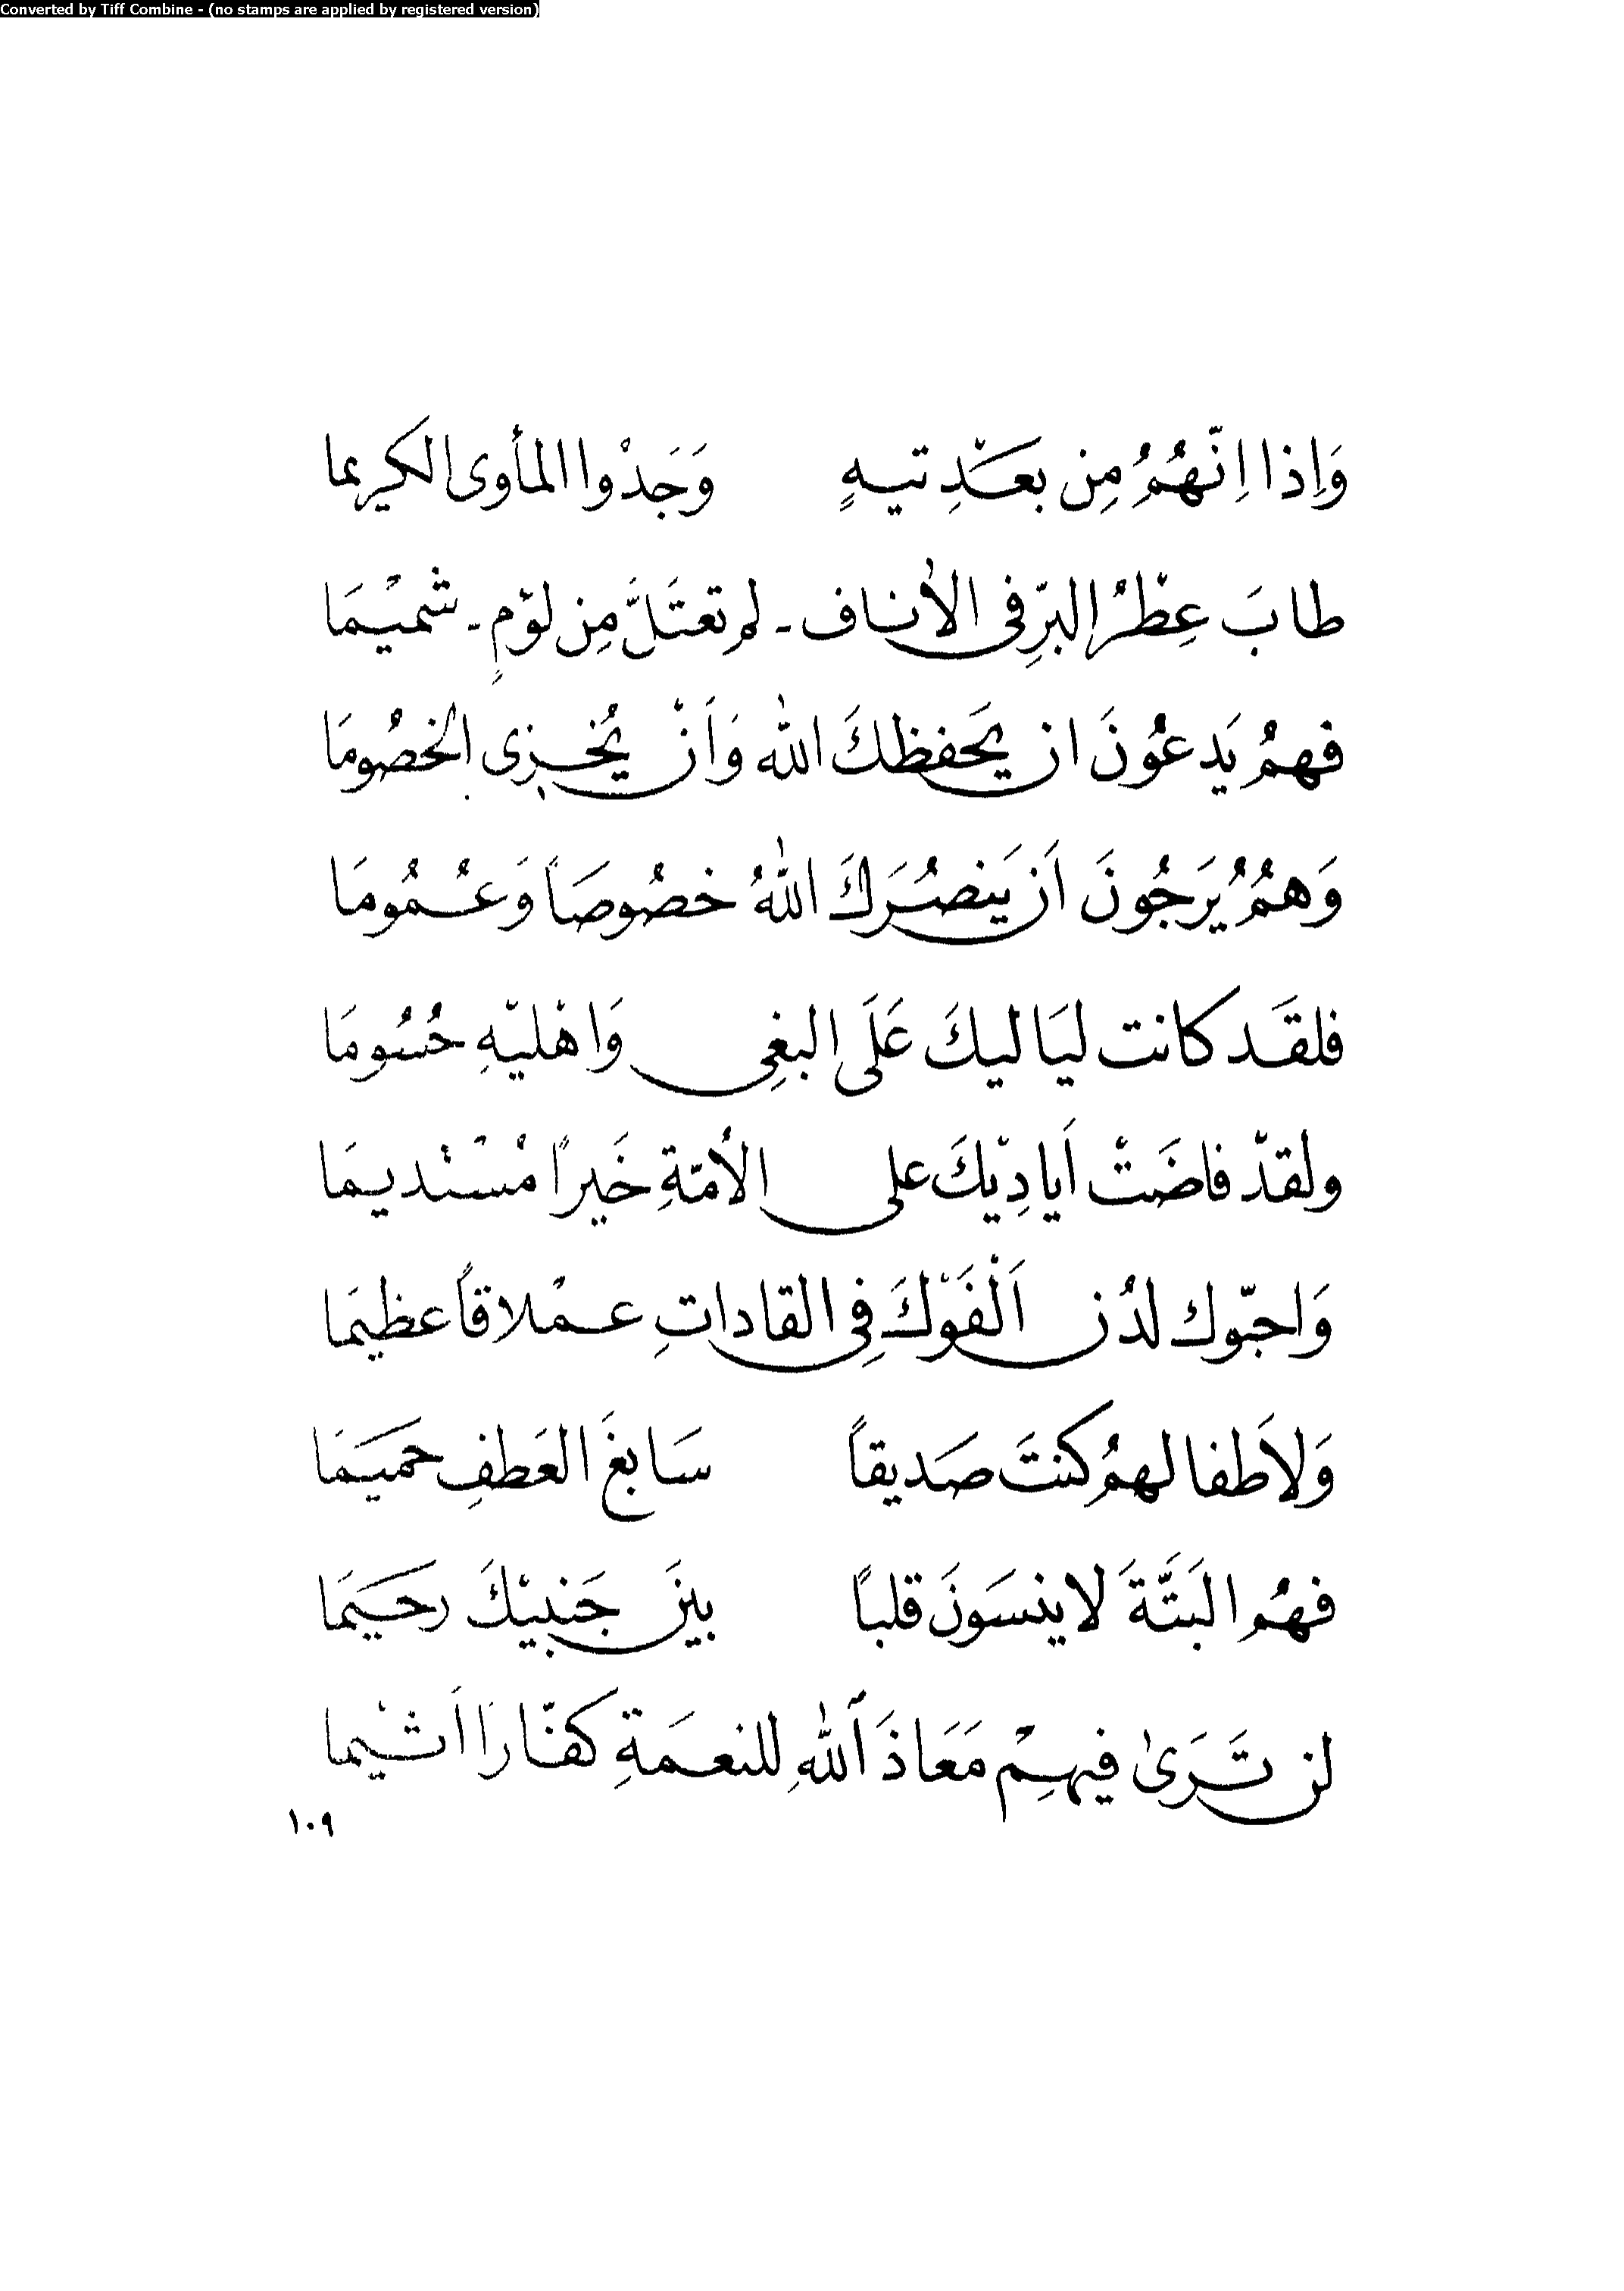 Converted by Tiff Combine - (no stamps are applied by registered version)
وَاِذا اِنّهُمُ مِن بعَدِ تيهٍ وَجَدْوا المأوى الكريما
طابَ عِطْرُ البرِّ في الأناف - لم تعتَلَّ مِن لؤمٍ - شميْمَا
فهمُ يَدعُونَ ان يحَفظكَ اللّٰه وَأنْ يُخزى الخصُومَا
وَهمُ يُرَجُونَ اَن يَنصُرَكَ اللّٰهُ خصُوصَاً وَعُمُومَا
فلقَد كانت ليَاليكَ عَلَى البغِي وَاهْليْهِ حُسُومَا
ولقدْ فاضَتْ اَيادِيْكَ على الأمّةِ خَيراً مْسْتْديمَا
وَاحبّوك لدُن اَلْفَوْكَ فِي القاداتِ عمْلاقاً عظيمَا
وَلاَطفالهمُ كنتَ صَديقاً سَابغَ العَطفِ حميَمَا
فهُم البَتَّةَ لا ينسَونَ قلباً بينَ جَنبيْكَ رحيَمَا
لن تَرَىٰ فيهِمْ مَعَاذَ اَللّٰهِ للنعمَةِ كفّارَاً اَثيْما
١٠٩